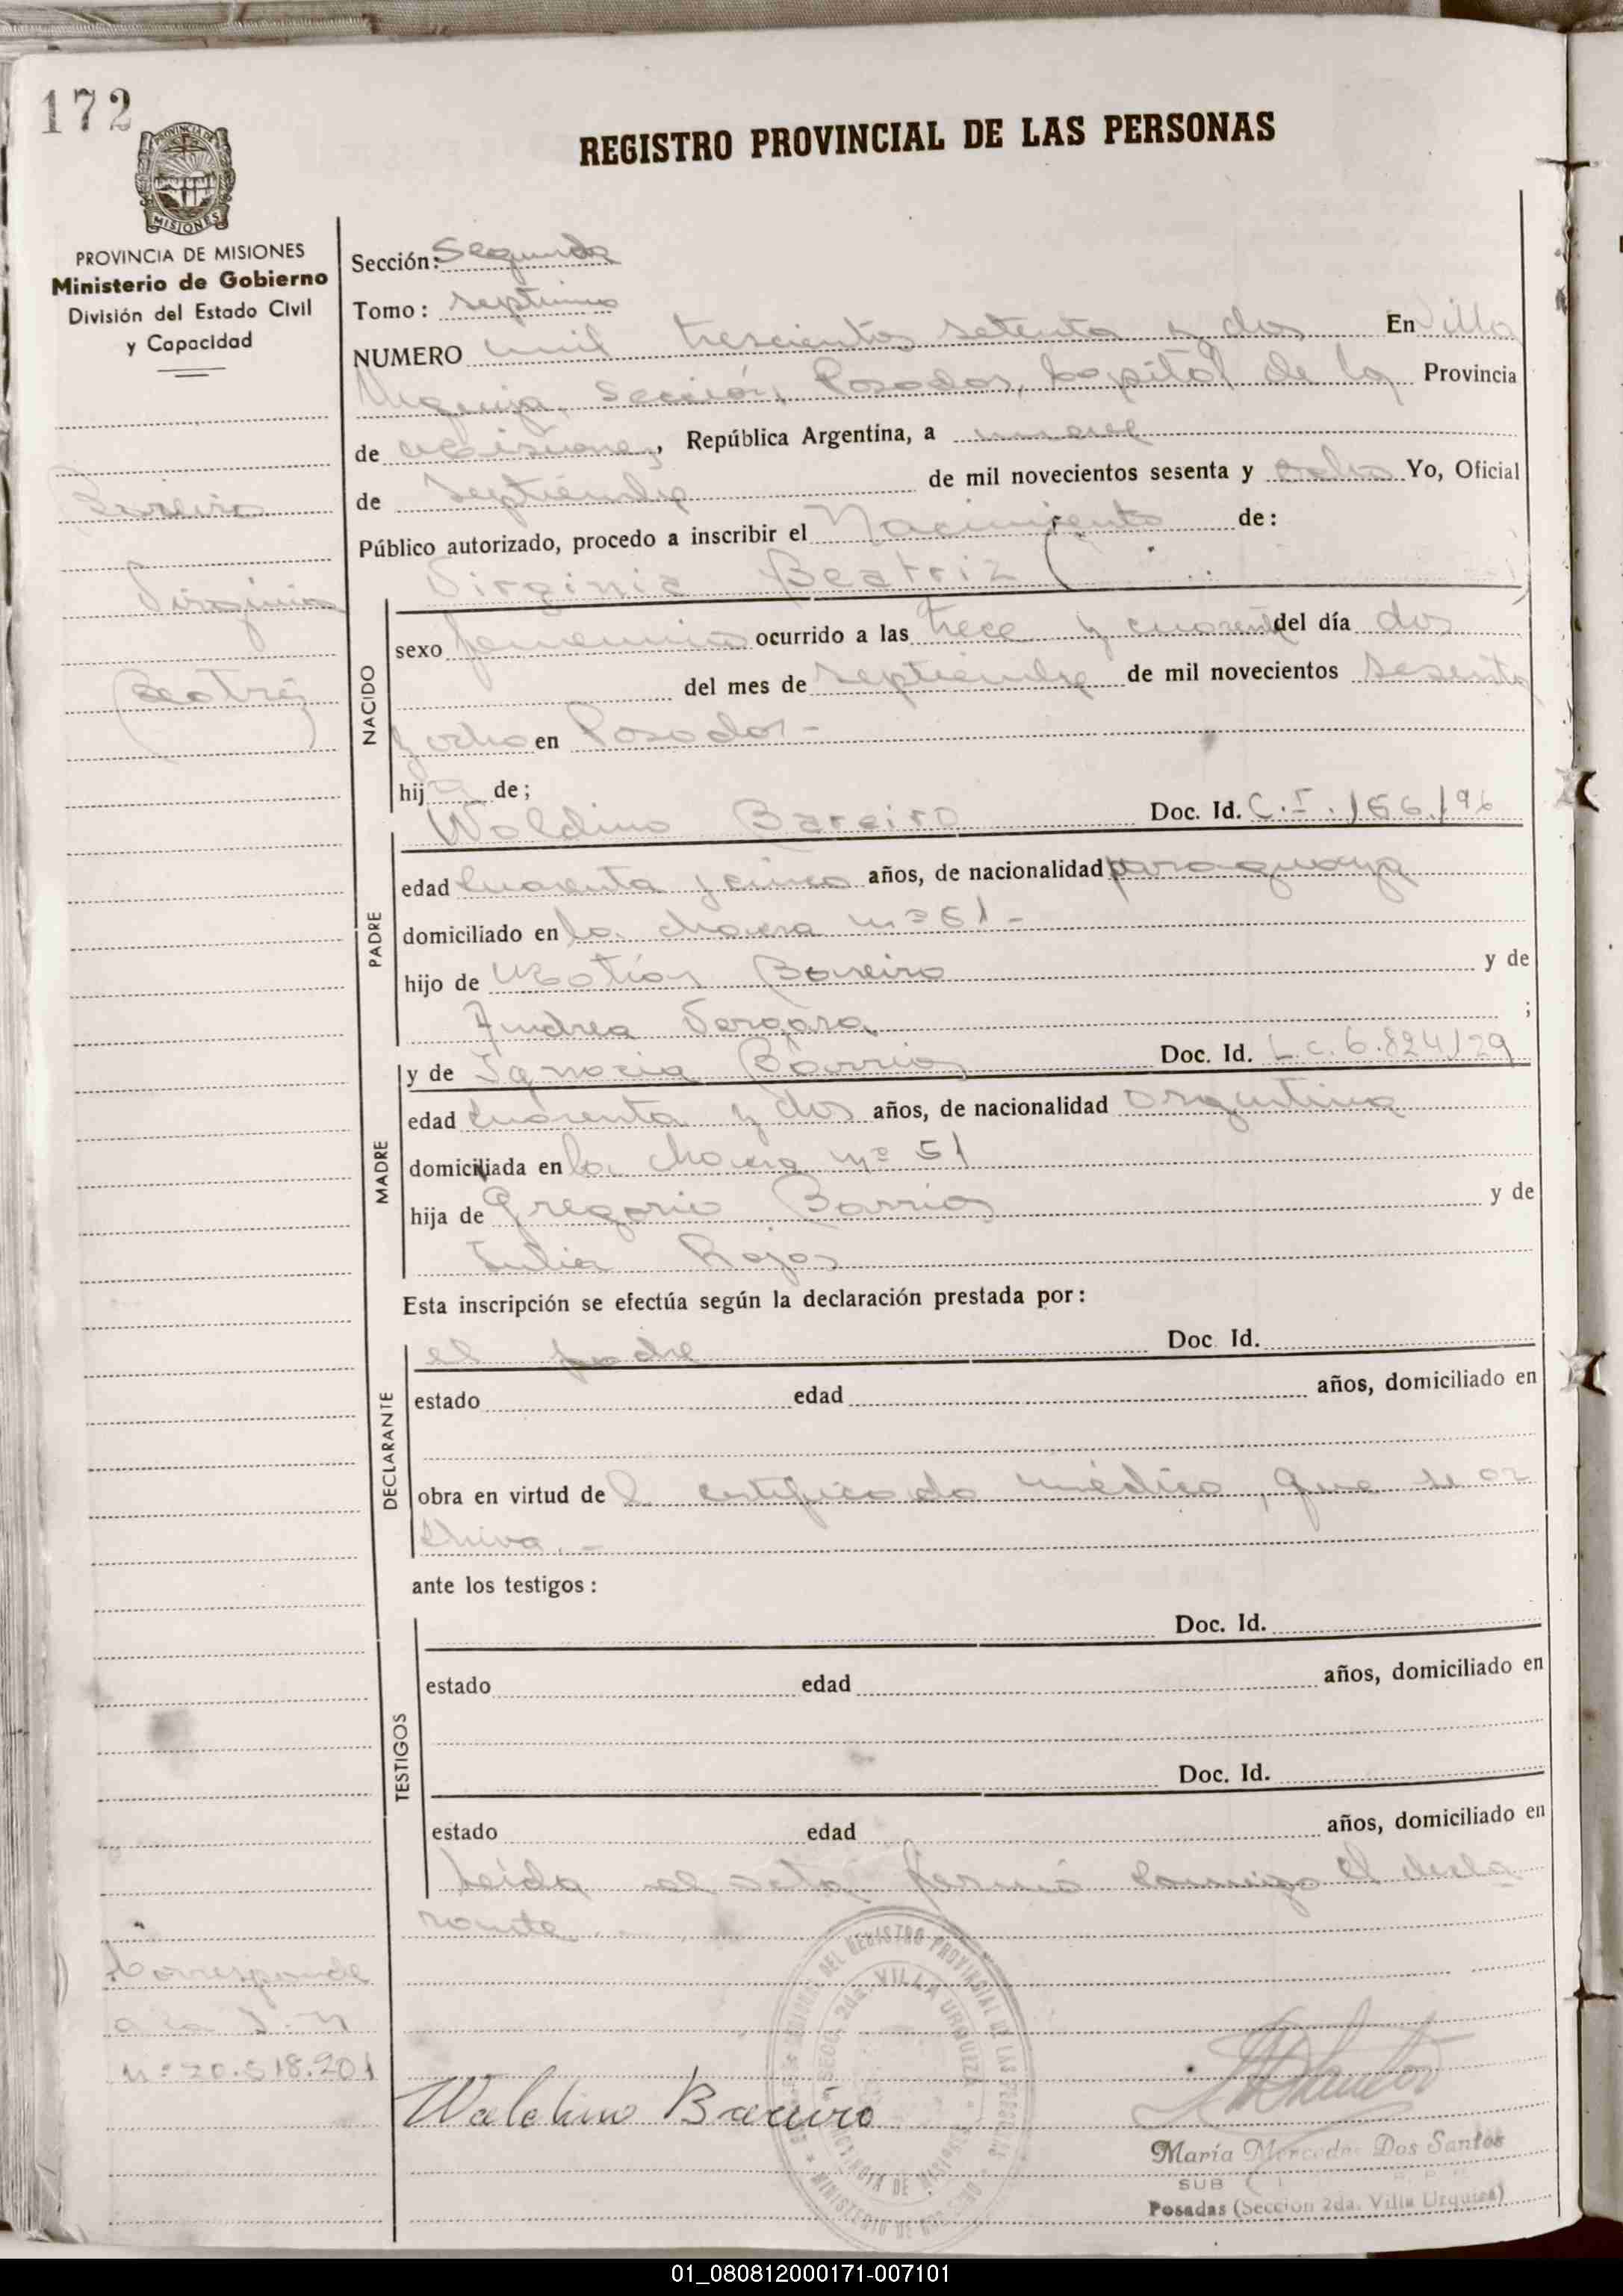 172
REGISTRO PROVINCIAL DE LAS PERSONAS
PROVINCIA DE MISIONES
Ministerio de Gobierno
División del Estado Civil
y Capacidad
Bareiro
Virginia
Beatriz
Sección: Segunda
Tomo: septimo
NUMERO mil trescientos setenta y dos En Villa
Urquiza, Sección, Posadas, Capital de la Provincia
de Misiones, República Argentina, a nueve
de Septiembre de mil novecientos sesenta y ocho Yo, Oficial
Público autorizado, procedo a inscribir el Nacimiento de:
Virginia Beatriz
NACIDO
sexo femenino ocurrido a las trece y cuarenta del día dos
del mes de septiembre de mil novecientos sesenta
y ocho en Posadas-
hija de;
Waldino Bareiro Doc. Id. C.I. 166.196
PADRE
edad cuarenta y cinco años, de nacionalidad paraguaya
domiciliado en la chacra nº 61-
hijo de Matías Bareiro y de
Andrea Vergara ;
y de Ignacia Barrios Doc. Id. L.C. 6.824.129
MADRE
edad cuarenta y dos años, de nacionalidad argentina
domiciliada en la chacra nº 51
hija de Gregorio Barrios y de
Julia Rojas
Esta inscripción se efectúa según la declaración prestada por:
el padre Doc. Id.
DECLARANTE
estado edad años, domiciliado en
obra en virtud del certificado médico, que se ar
chiva.-
ante los testigos:
Doc. Id.
TESTIGOS
estado edad años, domiciliado en
Doc. Id.
estado edad años, domiciliado en
Leida el acta firmó conmigo el decla
rante.
Corresponde
a la
nº 20.518.201
Waldino Bareiro
María Mercedes Dos Santos
SUB
Posadas (Sección 2da. Villa Urquiza)
01_080812000171-007101